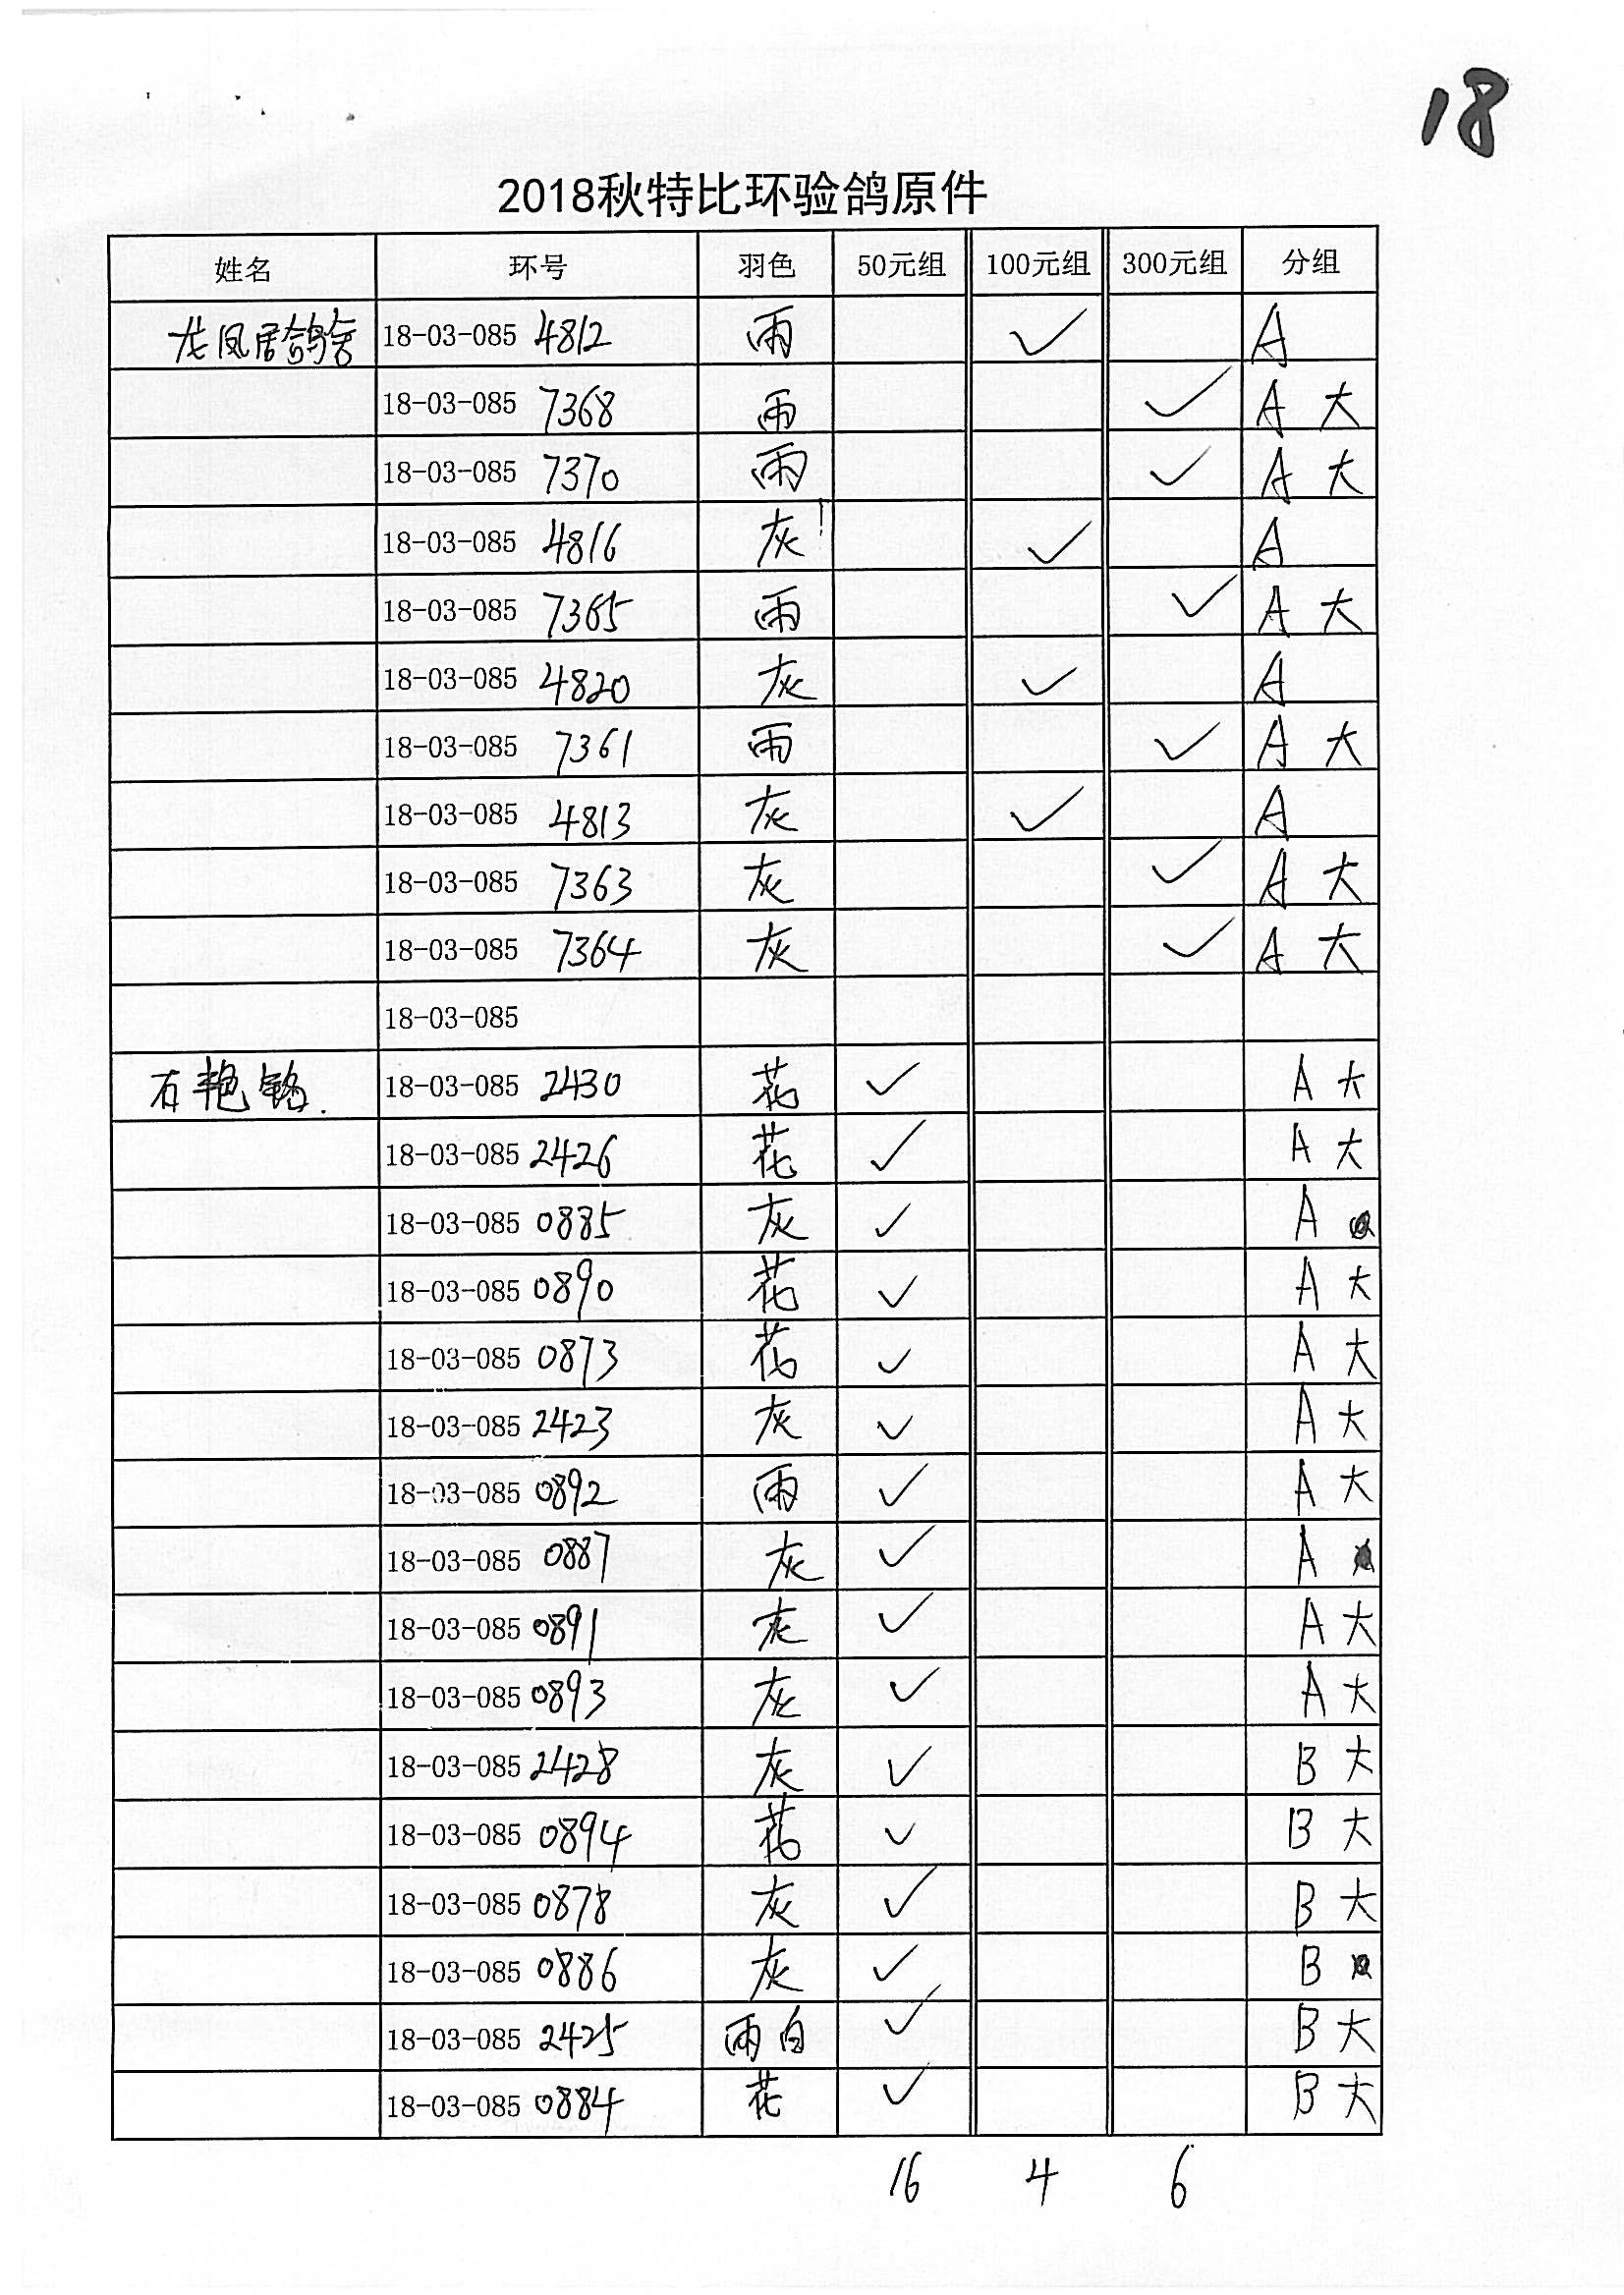 18
2018秋特比环验鸽原件
姓名 环号 羽色 50元组 100元组 300元组 分组
龙凤居鸽舍 18-03-085 4812 雨 ✓ A
18-03-085 7368 雨 ✓ A 大
18-03-085 7370 雨 ✓ A 大
18-03-085 4816 灰 ✓ A
18-03-085 7365 雨 ✓ A 大
18-03-085 4820 灰 ✓ A
18-03-085 7361 雨 ✓ A 大
18-03-085 4813 灰 ✓ A
18-03-085 7363 灰 ✓ A 大
18-03-085 7364 灰 ✓ A 大
18-03-085
石艳 18-03-085 2430 花 ✓ A 大
18-03-085 2426 花 ✓ A 大
18-03-085 0885 灰 ✓ A
18-03-085 0890 花 ✓ A 大
18-03-085 0873 花 ✓ A 大
18-03-085 2423 灰 ✓ A 大
18-03-085 0892 雨 ✓ A 大
18-03-085 0887 灰 ✓ A
18-03-085 0891 灰 ✓ A 大
18-03-085 0893 灰 ✓ A 大
18-03-085 2428 灰 ✓ B 大
18-03-085 0894 花 ✓ B 大
18-03-085 0878 灰 ✓ B 大
18-03-085 0886 灰 ✓ B
18-03-085 2425 雨白 ✓ B 大
18-03-085 0884 花 ✓ B 大
16 4 6